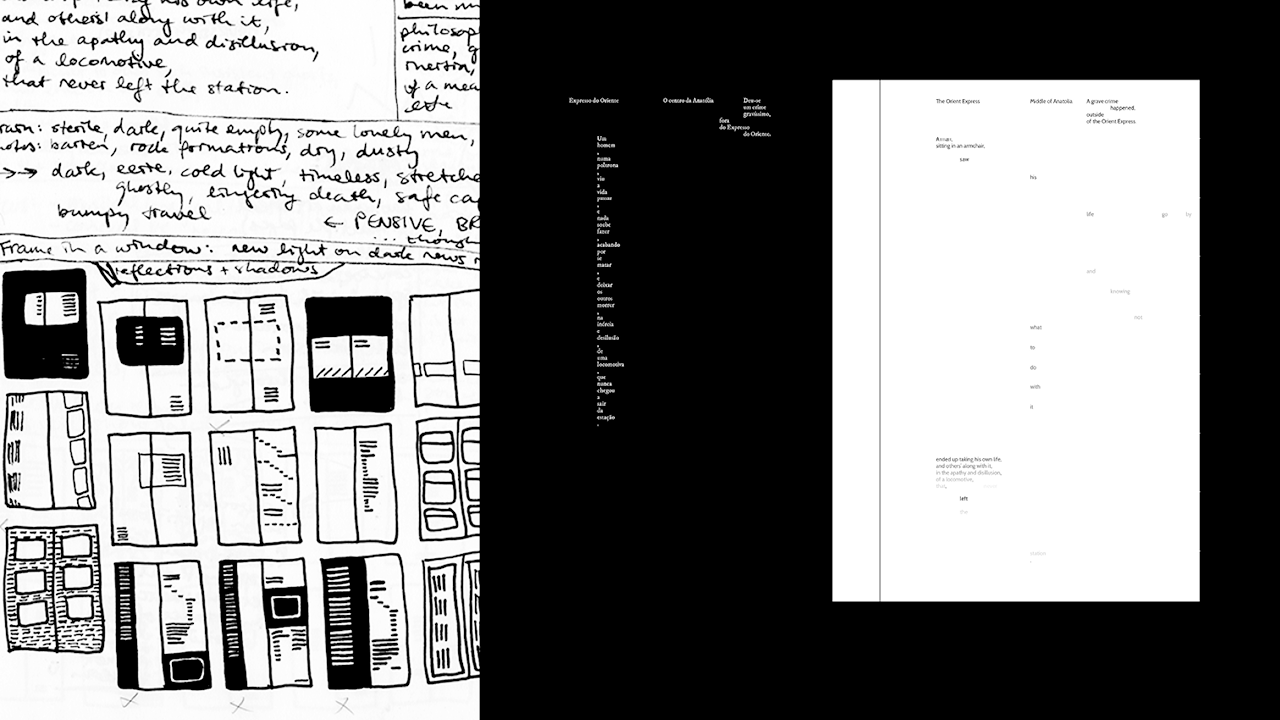 and others' along with it,
in the apathy and disillusion,
of a locomotive,
that never left the station.
been
philosop
crime, g
inertia,
of a mea
etc
sterile, dark, quite empty, some lonely men,
notes: barren, rock formations, dry, dusty
→→ dark, eerie, cold light, timeless, stretche
ghostly, lingering death, safe ca
bumpy travel
← PENSIVE, BR
... though
Frame in a window: new light on dark news
reflections + shadows
Expresso do Oriente
O centro da Anatólia
Deu-se
um crime
gravíssimo,
fora
do Expresso
do Oriente.
Um
homem
,
numa
poltrona
,
viu
a
vida
passar
,
e
nada
soube
fazer
,
acabando
por
se
matar
,
e
deixar
os
outros
morrer
,
na
inércia
e
desilusão
,
de
uma
locomotiva
,
que
nunca
chegou
a
sair
da
estação
.
The Orient Express
Middle of Anatolia
A grave crime
happened,
outside
of the Orient Express
A man,
sitting in an armchair,
saw
his
life go by
and
knowing
not
what
to
do
with
it
ended up taking his own life,
and others' along with it,
in the apathy and disillusion,
of a locomotive,
that, never
left
the
station
.